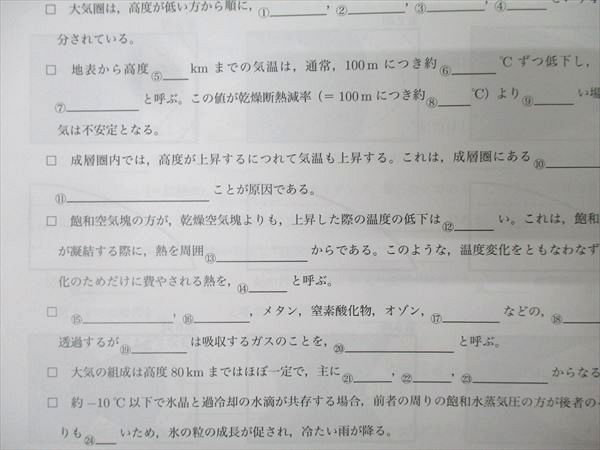 □ 大気圏は，高度が低い方から順に，①＿＿＿，②＿＿＿，③＿＿＿，④＿＿＿
分されている。
□ 地表から高度⑤＿＿ km までの気温は，通常，100 m につき約⑥＿＿＿ ℃ ずつ低下し，
⑦＿＿＿＿ と呼ぶ。この値が乾燥断熱減率（＝ 100 m につき約⑧＿＿＿℃）より⑨＿＿＿ い場
気は不安定となる。
□ 成層圏内では，高度が上昇するにつれて気温も上昇する。これは，成層圏にある⑩＿＿＿
⑪＿＿＿＿＿＿ ことが原因である。
□ 飽和空気塊の方が，乾燥空気塊よりも，上昇した際の温度の低下は⑫＿＿ い。これは，飽和
が凝結する際に，熱を周囲⑬＿＿＿＿ からである。このような，温度変化をともなわなず
化のためだけに費やされる熱を，⑭＿＿ と呼ぶ。
□ ⑮＿＿＿＿，⑯＿＿＿，メタン，窒素酸化物，オゾン，⑰＿＿＿ などの，⑱＿＿
透過するが⑲＿＿＿ は吸収するガスのことを，⑳＿＿＿＿＿ と呼ぶ。
□ 大気の組成は高度 80 km まではほぼ一定で，主に㉑＿＿，㉒＿＿，㉓＿＿＿ からなる
□ 約 −10 ℃ 以下で氷晶と過冷却の水滴が共存する場合，前者の周りの飽和水蒸気圧の方が後者の
りも㉔＿＿ いため，氷の粒の成長が促され，冷たい雨が降る。